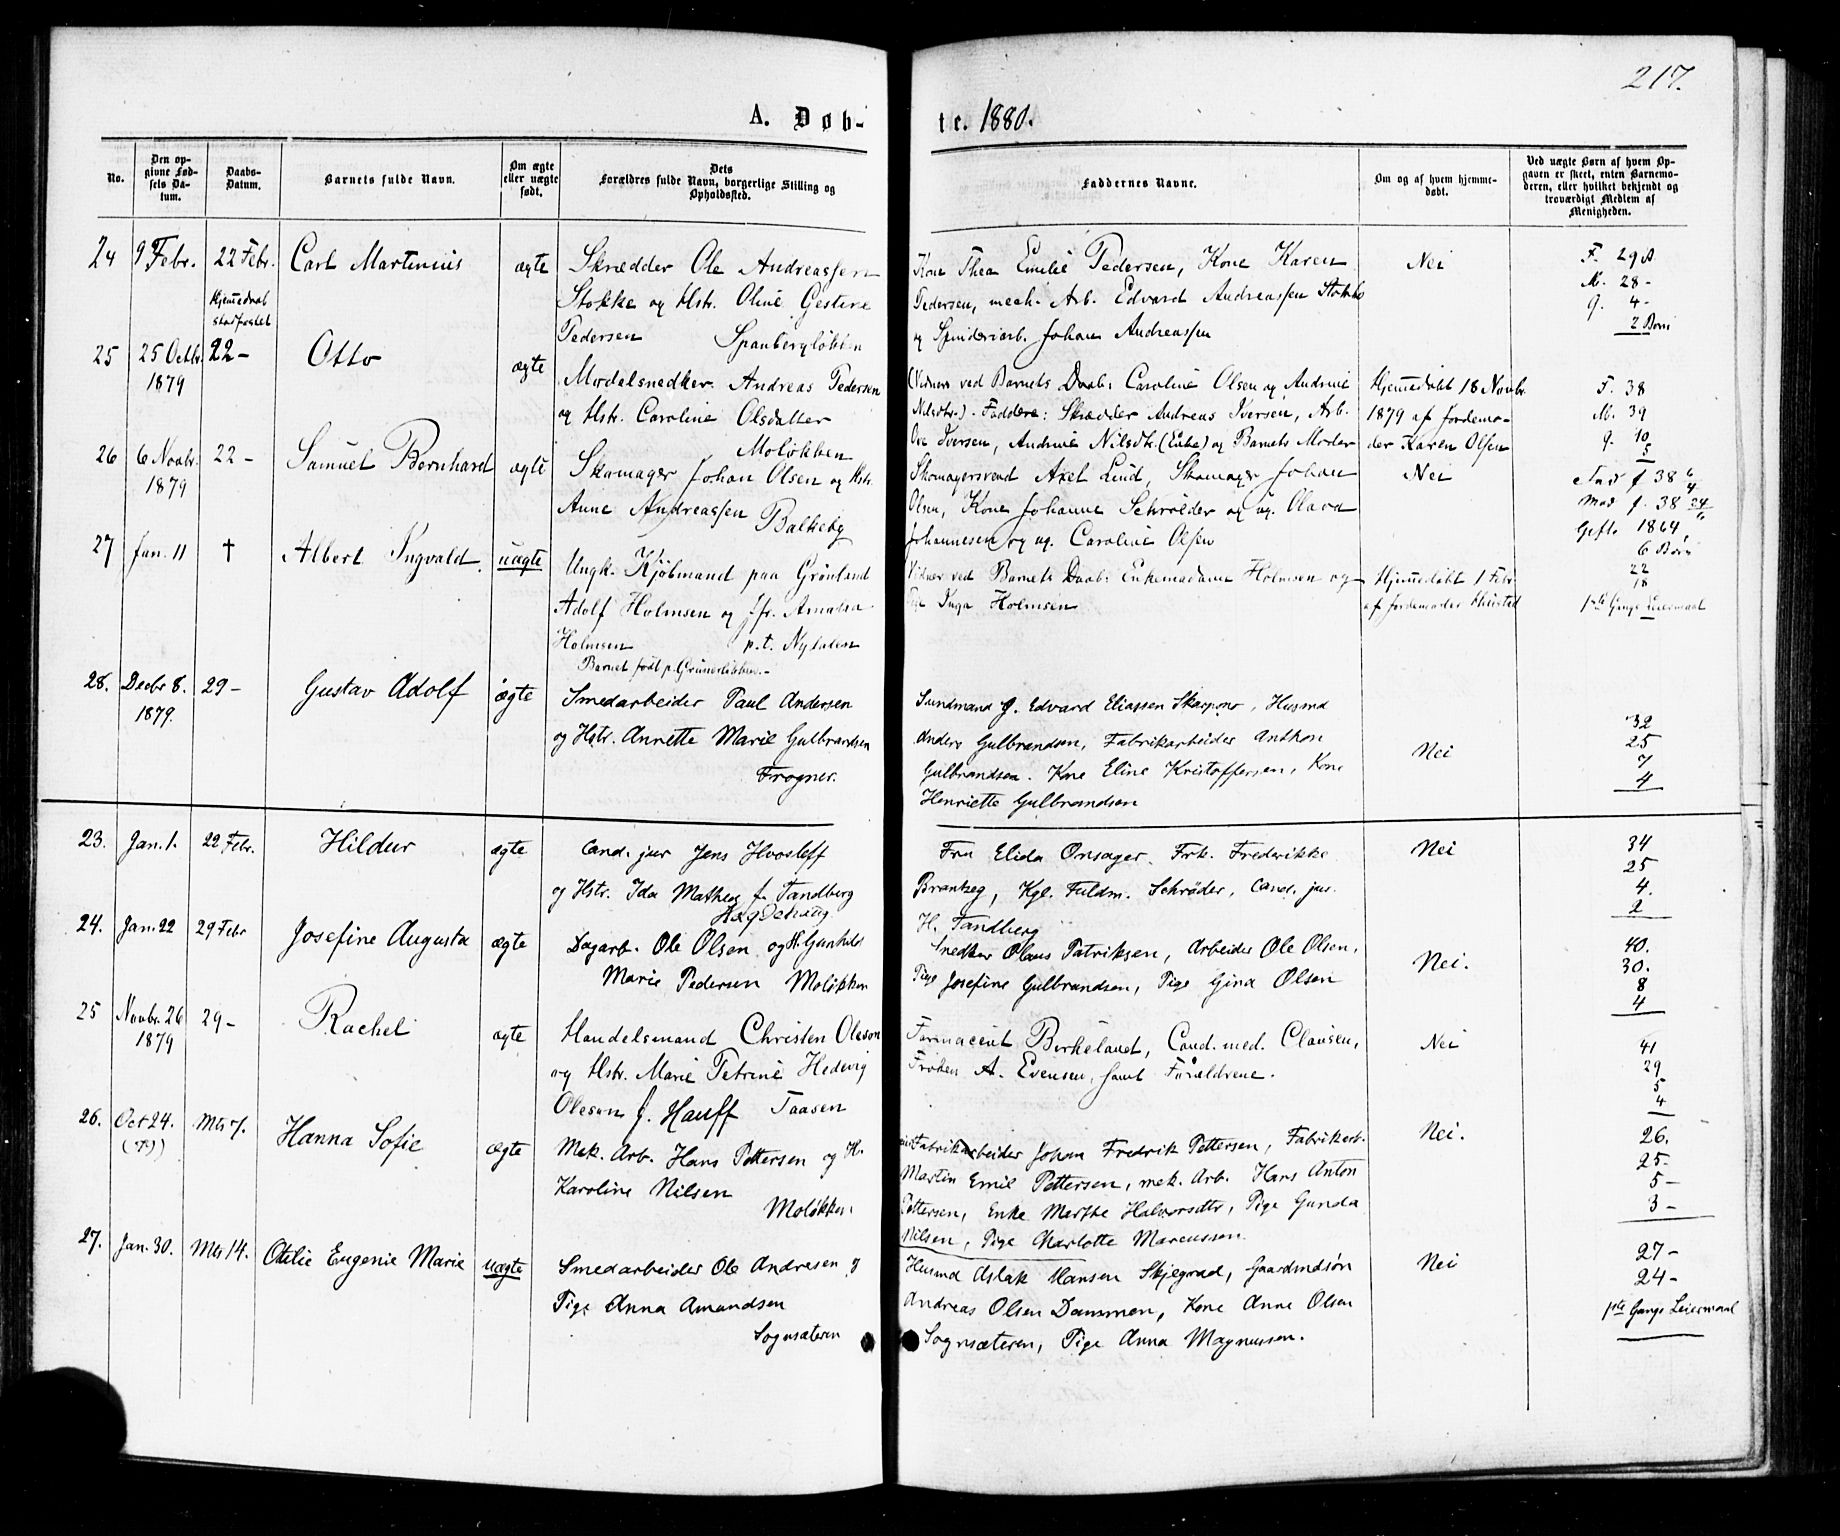 217.
A. Døb-
te. 1880.
No.
Den op-
givne Fød-
sels Da-
tum.
Daabs-
Datum.
Barnets fulde Navn.
Om ægte
eller uægte
født.
Dets
Forældres fulde Navn, borgerlige Stilling og
Opholdssted.
Faddernes Navne.
Om og af hvem hjemme-
døbt.
Ved uægte Børn af hvem Op-
gaven er skeet, enten Barnemo-
deren, eller hvilket bekjendt og
troværdigt Medlem af
Menigheden.
24 9 Febr. 22 Febr. Carl Martinius ægte
Skrædder Ole Andreassen
Stokke og Hstr. Oline
Pedersen Spanbergløkken
Kone Thea Emilie Pedersen, Kone Karen
Pedersen, mech. Arb. Edvard Andreassen Stokke
og Spinderiarb. Johan Andreassen
Nei
F. 29
M. 28 -
g. 4 -
2 Børn
Hjemmedaab
stadfæstet
25 25 Octbr. 1879 22 - Otto ægte
Modelsnedker Andreas Pedersen
og Hstr. Caroline Olsdatter
Moløkken
(Vidner ved Barnets Daab: Caroline Olsen og Andrine
Nilsdtr.) - Faddere: Skrædder Andreas Iversen, Arb.
Ove Iversen, Andrine Nilsdtr. (Enke) og Barnets Moder
Hjemmedøbt 18 Novbr.
1879 af Jordemo-
der Karen Olsen
F. 38
M. 39
g. 10
5
26 6 Novbr. 1879 22 - Samuel Bernhard ægte
Skomager Johan Olsen og Hstr.
Anne Andreassen Balkeby
Skomagersvend Axel Lind, Skomager Johan
Olsen, Kone Johanne Schrøder og ug. Olava
Johannesen og ug. Caroline Olsen
Nei
f 38
f. 38
Gift 1864
6 Børn
27 Jan. 11 † Albert Ingvald uægte
Ungk. Kjøbmand paa Grønland
Adolf Holmsen og Jfr. Amalia
Holmsen p.t. Nydalen
Barnet født p. Grünerløkken. -
Vidner ved Barnets Daab: Enkemadame Holmsen og
Pige Inga Holmsen
Hjemmedøbt 1 Febr.
af Jordemoder
22
18
1ste Gangs Leiermaal
28. Decbr 8. 1879. 29 - Gustav Adolf ægte
Smedarbeider Paul Andersen
og Hstr. Annette Marie Gulbrandsen
Frogner.
Edvard Eliassen Skarpsno, Husmd
Anders Gulbrandsen, Fabrikarbeider Anthon
Gulbrandsen. Kone Eline Kristoffersen, Kone
Henriette Gulbrandsen
Nei
32
25
7
4
23. Jan. 1. 22 Febr. Hildur ægte
Cand. jur Jens Hvoslef
og Hstr. Ida Mathea f. Tandberg
Hægdehaug
Fru Elida Onsager. Frk. Frederikke
Brantzeg, Kgl. Fuldm. Schrøder, Cand. jur.
H. Tandberg
Nei
34
25
4.
2
24. Jan. 22 29 Febr Josefine Augusta ægte
Dagarb. Ole Olsen og H. Gunhild
Marie Pedersen Moløkken
Snedker Olaus Patriksen, Arbeider Ole Olsen,
Pige Josefine Gulbrandsen, Pige Gina Olsen
Nei.
40.
30.
8
4
25 Novbr. 26 1879 29 - Rachel ægte
Handelsmand Christen Oleson
og Hstr. Marie Petrine Hedevig
Oleson f. Hauff Taasen
Farmaceut Birkeland, Cand. med. Clausen,
Frøken A. Evensen, samt Forældrene.
Nei
41
29
5
4
26. Oct 24. (79) Mts 7. Hanna Sofie ægte
Mek. Arb. Hans Pettersen og H.
Karoline Nilsen
Moløkken
Fabrikarbeider Johan Fredrik Pettersen, Fabrikarb.
Martin Emil Pettersen, mek. Arb. Hans Anton
Pettersen, Enke Marthe Halvorsdtr, Pige Gunda
Nilsen, Pige Charlotte Marcussen.
Nei.
26.
25 -
5 -
3 -
27. Jan. 30. Mts 14. Otilie Eugenie Marie uægte
Smedarbeider Ole Andresen og
Pige Anna Amundsen
Sognsæteren
Husmd Aslak Hansen Skjegrad, Gaardmdsøn
Andreas Olsen Dammen, Kone Anne Olsen
Sognsæteren, Pige Anna Magnussen.
Nei
27 -
24 -
1ste Gangs Leiermaal